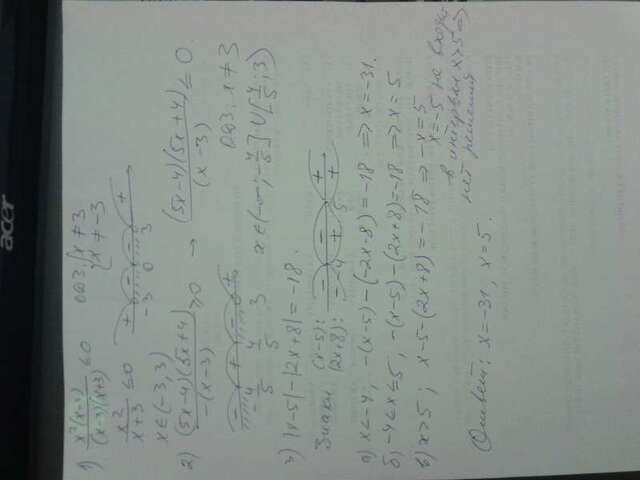 acer
1) x²(x-3)/(x-3)(x+3) ≤0 ОДЗ: {x ≠ 3 {x ≠ -3
x²/x+3 ≤0
+ - - +
-3 0 3
x∈(-3; 3)
2) (5x-4)(5x+4)/-(x-3) ≥0 → (5x-4)(5x+4)/(x-3) ≤ 0.
- + - +
-4/5 4/5 3
ОДЗ: x ≠ 3
x∈(-∞; -4/5]∪[4/5; 3)
3) |x-5|-|2x+8|=-18.
Знаки: (x-5): - - +
(2x+8): - -4 + 5 +
а) x<-4, -(x-5)-(-2x-8)=-18 => x=-31.
б) -4<x<=5, -(x-5)-(2x+8)=-18 => x=5.
в) x>5; x-5-(2x+8)=-18 => -x=5
x=-5 не входит
в интервал x>5 =>
нет решения
Ответ: x=-31, x=5.